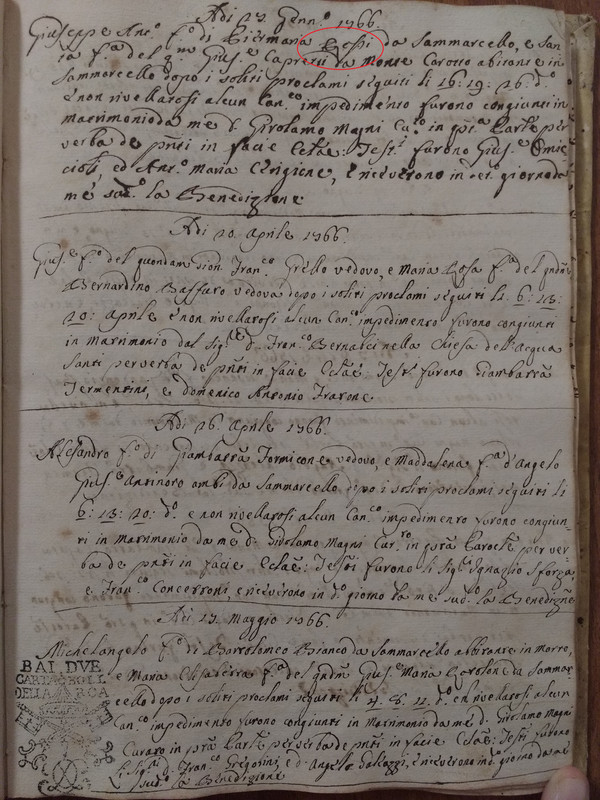 Adi 17 Genn.º 1766.
Giuseppe Ant.º f.º di Piermaria Rossi da Sammarcello, e San
ta f.ª del q.m Gius.e Capretti da Monte Carotto abitante in
Sammarcello dopo i soliti proclami seguiti li 16: 19: 26: d.º
e non rivellatosi alcun Can.co impedimento furono congiunti in
matrimonio da me D. Girolamo Magni Cu.to in q.ta Par.le per
verba de pñti in facie Ecläe: Test.i furono Gius.e
cioli, ed Ant.º Maria, e riceverono in d.º giorno da
me sud.º la Benedizione
Adi 20. Aprile 1766.
Gius.e f.º del quondam Fran.co Grillo vedovo, e Maria Rosa f.ª del qndm̃
Bernardino Baffuro vedova dopo i soliti proclami seguiti li 6: 13:
20: Aprile e non rivellatosi alcun Can.co impedimento furono congiunti
in matrimonio dal Sig.re D. Fran.co Bernacci nella Chiesa dell'Acqua
Santi per verba de pñti in facie Ecläe: Test.i furono Giambattã
Termentini, e Domenico Antonio Fratone
Adi 26. Aprile 1766.
Alesandro f.º di Giambattã Formicone vedovo, e Maddalena f.ª d'Angelo
Gius.e Antinoro ambi da Sammarcello, dopo i soliti proclami seguiti li
6: 13: 20: d.º e non rivellatosi alcun Can.co impedimento furono congiun-
ti in Matrimonio da me D. Girolamo Magni Cur.to in q.ta Parocle per ver
ba de pñti in facie Ecläe: Testi furono li Sig.ri Ignazio Sforza
e Fran.co Concettoni, e riceverono in d.º giorno da me sud.º la Benedizñe
Adi 17. Maggio 1766.
Michelangelo f.º di Bartolomeo Bianco da Sammarcello abbitante in Morro,
e Maria Elisabetta f.ª del qndm̃ Gius.e Maria da Sammar
cello dopo i soliti proclami seguiti li 4. 8. 11. d.º e n rivellatosi alcun
Can.co impedimento furono congiunti in Matrimonio da me D. Girolamo Magni
Curato in p.ta Par.le per verba de pñti in facie Ecläe: Testi furono
li Sig.ri D. Fran.co Gregorini, e d'Angelo Galeazzi, e riceverono in d. giorno da me
sud.º la Benedizione
BAI. DVE
CARTA BOLL
DELLA ARCA